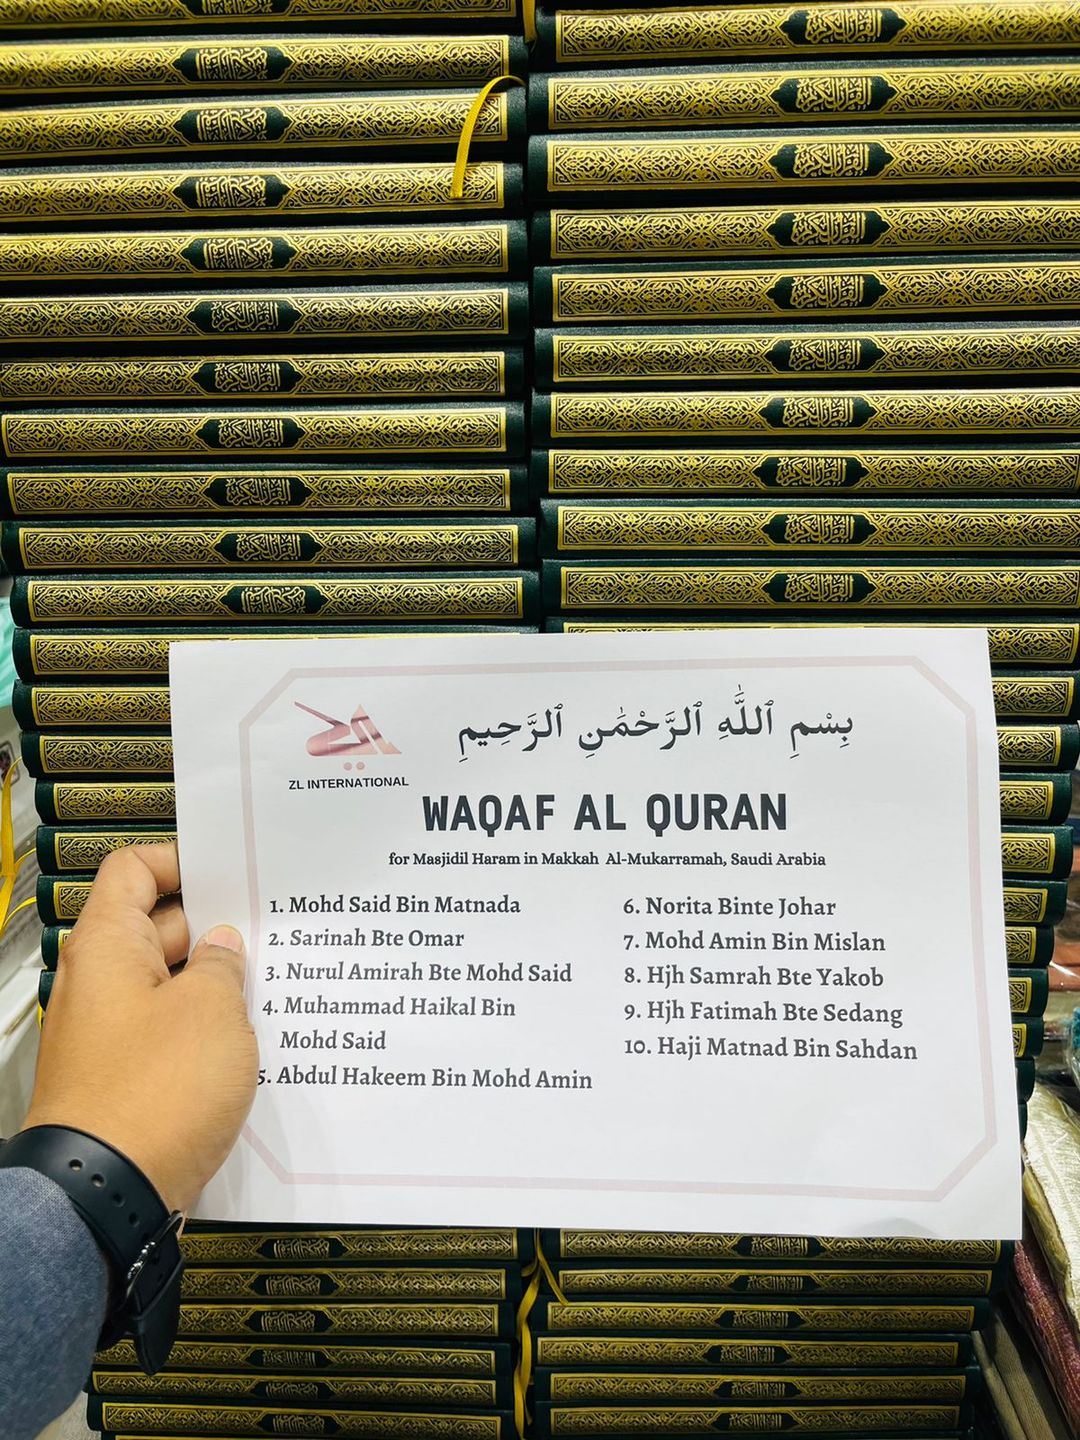 ZL INTERNATIONAL
بِسْمِ ٱللَّٰهِ ٱلرَّحْمَٰنِ ٱلرَّحِيمِ
WAQAF AL QURAN
for Masjidil Haram in Makkah Al-Mukarramah, Saudi Arabia
1. Mohd Said Bin Matnada
2. Sarinah Bte Omar
3. Nurul Amirah Bte Mohd Said
4. Muhammad Haikal Bin
Mohd Said
5. Abdul Hakeem Bin Mohd Amin
6. Norita Binte Johar
7. Mohd Amin Bin Mislan
8. Hjh Samrah Bte Yakob
9. Hjh Fatimah Bte Sedang
10. Haji Matnad Bin Sahdan